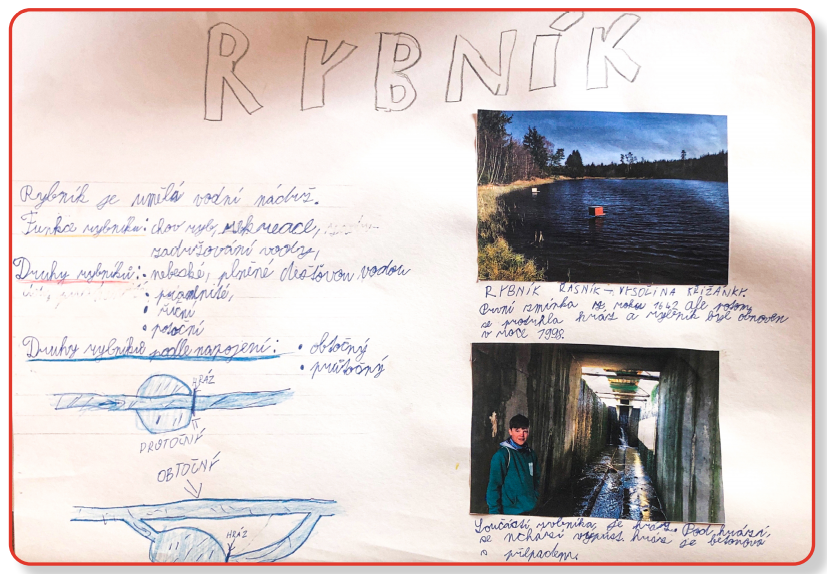 RYBNÍK
Rybník je umělá vodní nádrž.
Funkce rybníku: chov ryb, rekreace,
zadržování vody,
Druhy rybníků: nebeské, plněné dešťovou vodou
• pramenité,
• říční
• potoční
Druhy rybníků podle napojení: • obtočný
• průtočný
HRÁZ
PROTOČNÝ
OBTOČNÝ
HRÁZ
RYBNÍK RASNÍK – VYSOČINA KŘIŽÁNKY.
První zmínka roku 1642 ale potom
se protrhla hráz a rybník byl obnoven
v roce 1998.
Součástí rybníka je hráz. Pod hrází
se nchází výpust hráz je betonová
s přepadem.